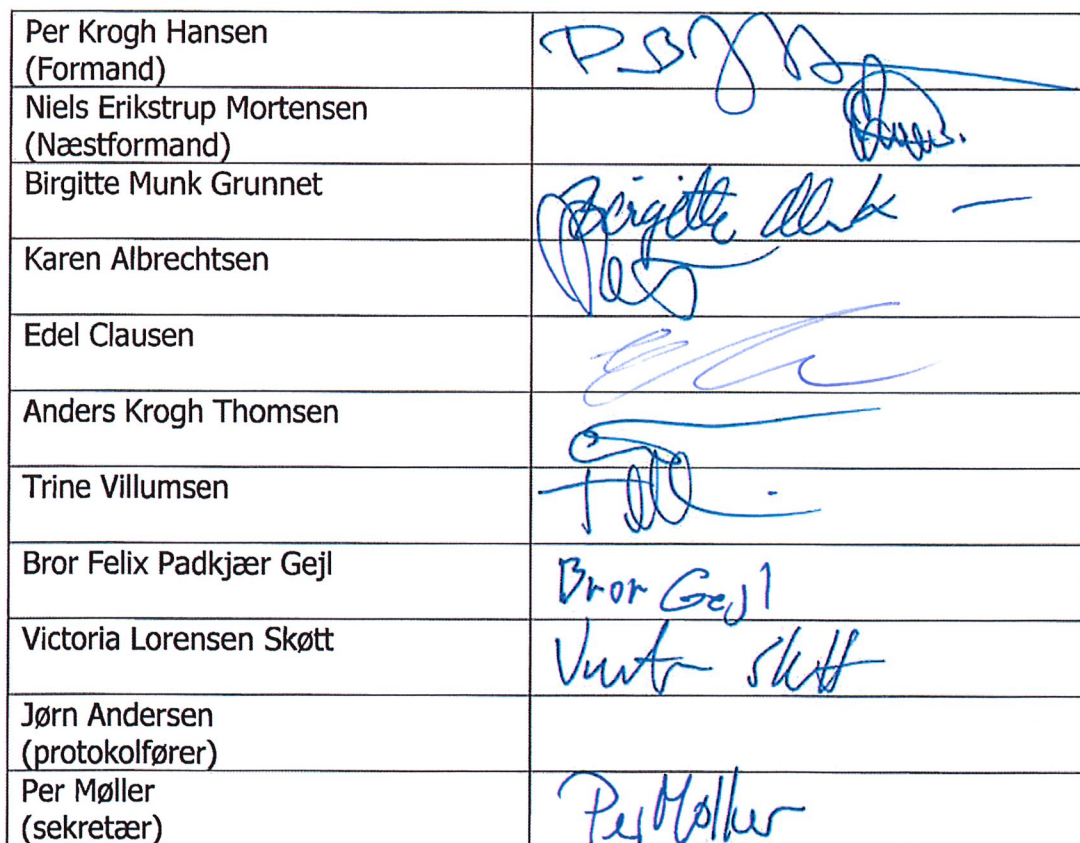 Per Krogh Hansen
(Formand)
Niels Erikstrup Mortensen
(Næstformand)
Birgitte Munk Grunnet
Birgitte Munk
Karen Albrechtsen
Edel Clausen
Anders Krogh Thomsen
Trine Villumsen
Bror Felix Padkjær Gejl
Bror Gejl
Victoria Lorensen Skøtt
Skøtt
Jørn Andersen
(protokolfører)
Per Møller
(sekretær)
Per Møller